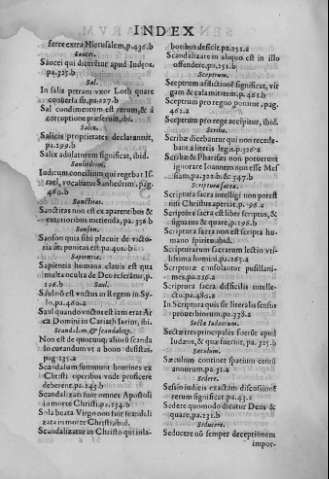 INDEX
ferre extra Hierusalem, p.436.b
Saucei.
Saucei qui dicetur apud Judæos
pa.325.b
Sal.
In salis petram vxor Loth quare
conuersa sit, pa.227.b
Sal condimentum est rerum, & à
corruptione præseruat, ibi.
Salix.
Salicis proprietates declarantur,
pa.299.b
Salix adulatorem significat, ibid.
Sanhedrim.
Iudicum concilium qui regebat Is-
rael, vocabatur Sanhedrim, pag.
Sanctitas.
Sanctitas non est ex aparentibus &
exterioribus metienda, pa.356 b
Sanson.
Sanson quia sibi placuit de victo-
ria siti punitus est, pa.400.b
Sapientia.
Sapientia humana clauis est qua
multa oculta de Deo referatur, p.
Saul.
Saul vnctus in Regem in Sy-
lo, pa.460.a
Saul quando vnctus est iam erat Ar
ca Domini in Cariath Iarim, ibi.
Scandalum, & scandaliza.
Non est de quocunq; alioru scanda
lo curandum vt a bono desistat,
pag.125.a
Scandalum sumunt homines ex
Christi operibus vnde proficere
deberent, pa.245.b
Scandalizati sunt omnes Apostoli
in morte Christi, pa.154.b
Sola beata Virgo non fuit scandali
zata in morte Christi, ibid.
Scandalizatur in Christo qui in la-
boribus deficit, pa.251.a
Scandalizare in aliquo est in isto
offendere, pa.251.b
Sceptrum.
Sceptrum afflictione significat, vir
gam & calamum
Sceptrum pro regno ponitur, pag.
Sceptrum pro rege accipitur, ibid.
Scriba.
Scribæ dicebantur qui non recede-
bant a literis legis
Scribæ & Pharisæi non potuerunt
ignorare Ioannem non esse Mes
siam, pa.322.b. & 347.b
Scriptura sacra.
Scriptura sacra intelligi non potest
nisi Christus aperiat
Scriptura sacra est liber scriptus, &
signatus & quare, p.196.b
Scriptura sacra non est scripta hu-
mano spiritu ibid.
Scripturarum sacrarum lectio vti-
lissima homini, pa.263.a
Scripturæ consolantur pusillani-
mes
Scriptura sacra difficilis intelle-
ctu
In Scriptura quis sit literalis sensus
prouerbiorum, pa.278.a
Secta Iudæorum.
Sectæ tres principales fuerut apud
Iudæos, & quæ fuerint, p.321.b
Seculum.
Sæculum continet spatium centu
annorum
Sedere.
Sessio iudicis exactam discussione
rerum significat pa.43.a
Sedere quomodo dicatur Deus &
quare, pa.231.b
Seducere.
Seducere no semper deceptionem
impor-